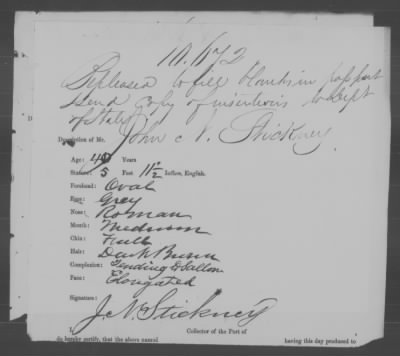 Be pleased to fill blanks in passport
send copy of insertions to Dept
of State
Description of Mr. John N. Stickney
Age: 40 Years
Stature: 5 Feet 11 1/2 Inches, English.
Forehead: Oval
Eyes: Grey
Nose: Roman
Mouth: Medium
Chin: Full
Hair: Dark Brown
Complexion: Tending to Sallow
Face: Elongated
Signature: J. N. Stickney
Collector of the Port of
do hereby certify, that the above named having this day produced to